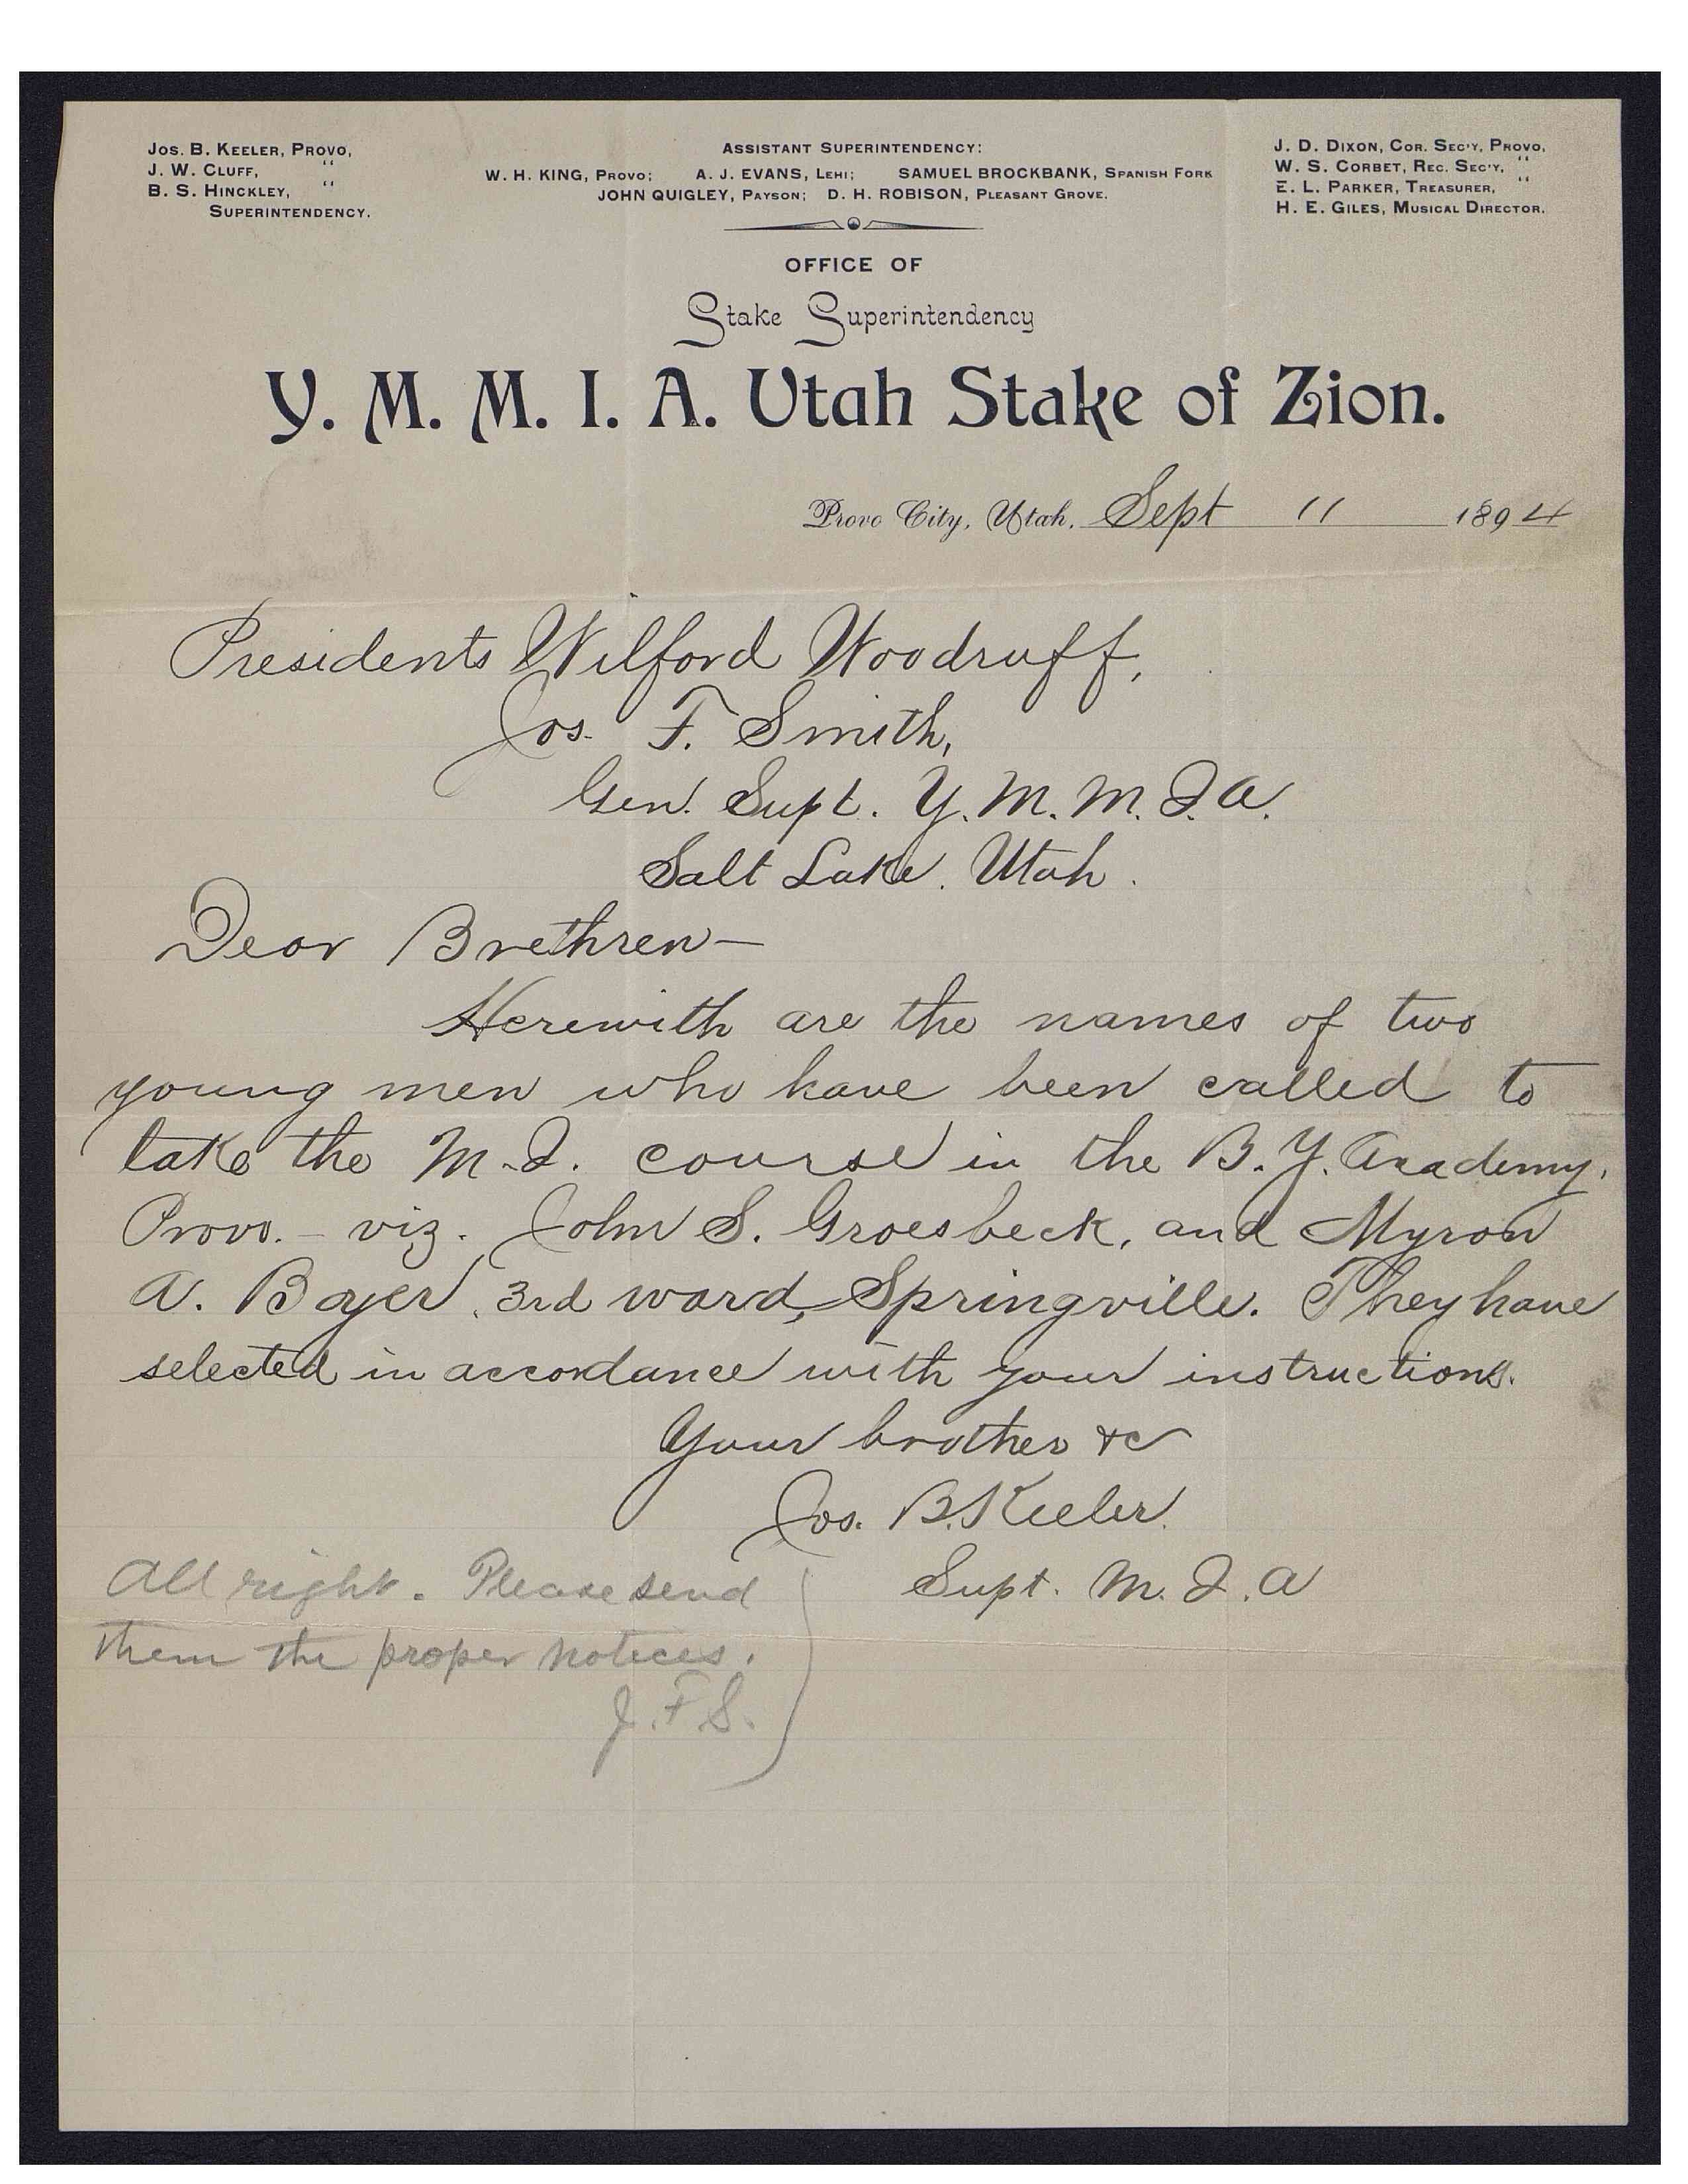 Jos. B. Keeler, Provo,
J. W. Cluff, "
B. S. Hinckley, "
Superintendency.
Assistant Superintendency:
W. H. KING, Provo; A. J. EVANS, Lehi; SAMUEL BROCKBANK, Spanish Fork
JOHN QUIGLEY, Payson; D. H. ROBISON, Pleasant Grove.
J. D. Dixon, Cor. Sec'y, Provo,
W. S. Corbet, Rec. Sec'y, "
E. L. Parker, Treasurer, "
H. E. Giles, Musical Director.
OFFICE OF
Stake Superintendency
Y. M. M. I. A. Utah Stake of Zion.
Provo City, Utah, Sept 11 1894
Presidents Wilford Woodruff,
Jos. F. Smith,
Gen. Supt. Y. M. M. I. A.
Salt Lake. Utah.
Dear Brethren—
Herewith are the names of two
young men who have been called to
take the M. I. course in the B. Y. Academy,
Provo. – viz. John S. Groesbeck, and Myron
A. Boyer, 3rd ward, Springville. They have
selected in accordance with your instructions.
Your brother &c
Jos. B. Keeler.
Supt. M. I. A
All right. Please send
them the proper notices.
J. F. S.